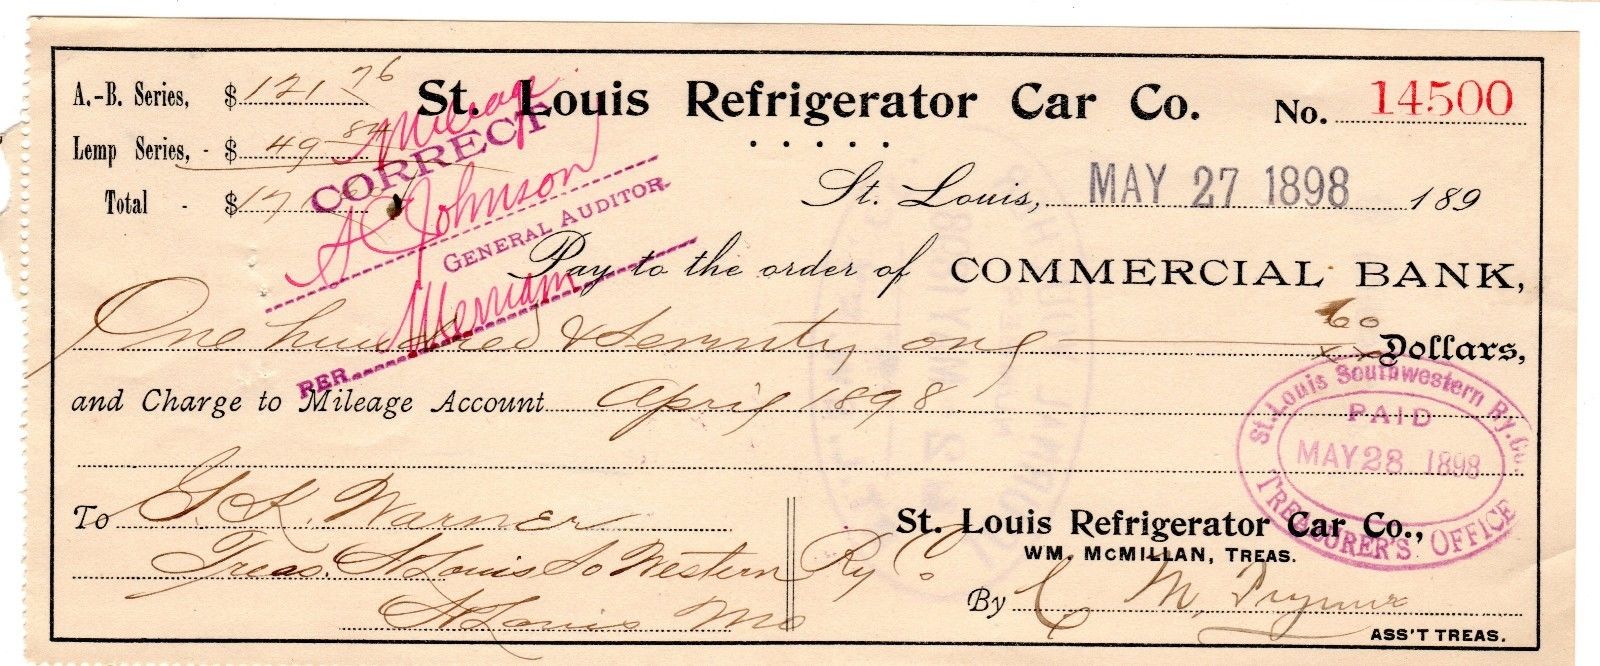 A.-B. Series, $ 121 76
Lemp Series, - $ 49 84
Total - $ 171
St. Louis Refrigerator Car Co.
No. 14500
Mileage
CORRECT
A Johnson
GENERAL AUDITOR.
PER Merriam
St. Louis, MAY 27 1898 189
Pay to the order of COMMERCIAL BANK,
One hundred & Seventy one 60/xx Dollars,
and Charge to Mileage Account April 1898.
St. Louis Southwestern Ry. Co.
PAID
MAY 28 1898
TREASURER'S OFFICE
To G. K. Warner
Treas. St Louis So Western Ry Co
St Louis Mo
St. Louis Refrigerator Car Co.,
WM. McMILLAN, TREAS.
By C M.
ASS'T TREAS.